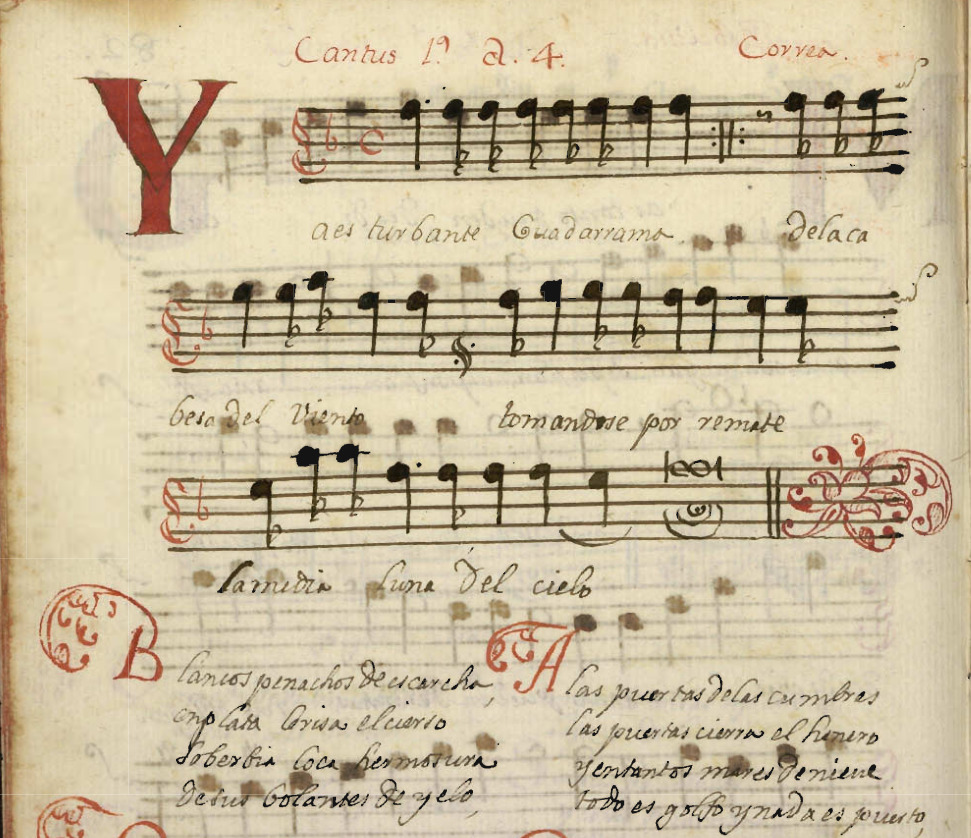 Cantus 1º a. 4. Correa.
Y
a es turbante Guadarrama dela ca
besa del Viento tomandose por remate
la media luna del cielo
Blancos penachos de escarcha
en plata brisa el cierso
soberbia loca hermosura
de sus bolantes de yelo
A las puertas delas cumbres
las puertas cierra el henero
y en tantos mares de nieue
todo es golfo y nada es puerto